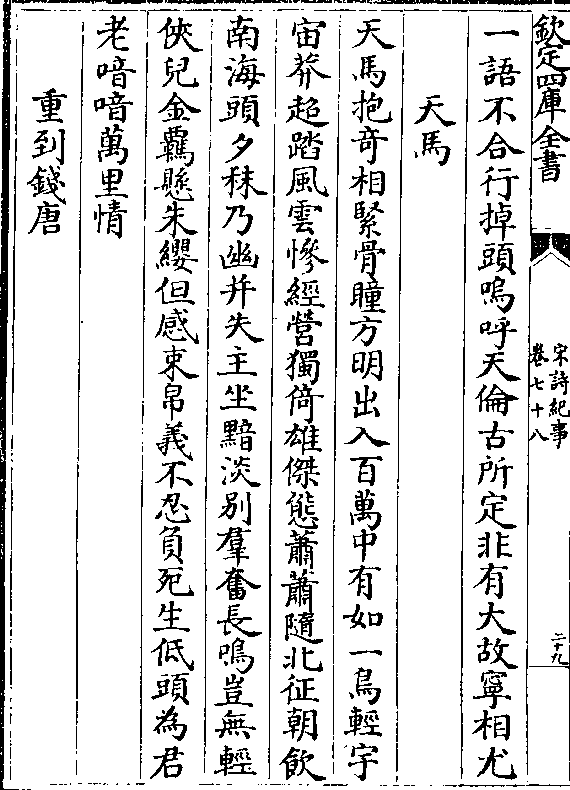 欽定四庫全書
宋詩紀事
卷七十八
二十九
一語不合行掉頭嗚呼天倫古所定非有大故寧相尤
天馬
天馬抱奇相緊骨瞳方明出入百萬中有如一鳥輕宇
宙莽超踏風雲慘經營獨倚雄傑態蕭蕭隨北征朝飲
南海頭夕秣乃幽并失主坐黯淡别羣奮長鳴豈無輕
俠兒金羈懸朱纓但感束帛義不忍負死生低頭為君
老喑喑萬里情
重到錢唐